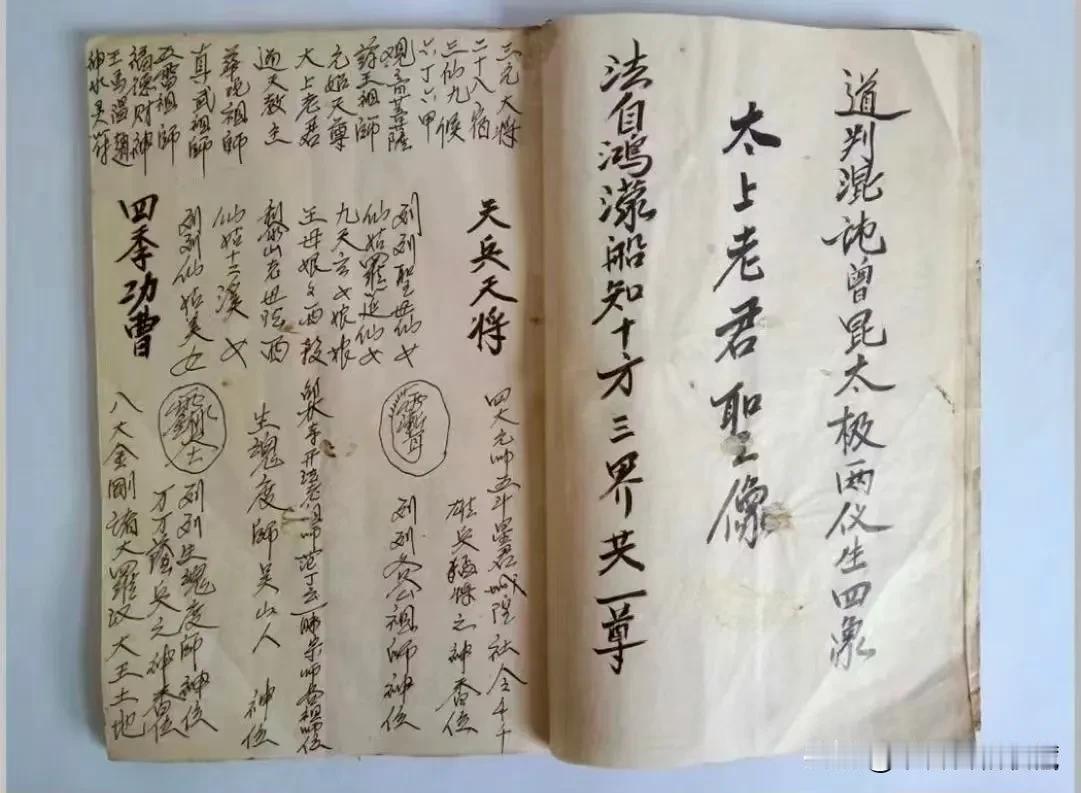 道判混沌曾昆太极两仪生四象
太上老君聖像
法自鴻濛船知十方三界共一尊
三元大将
二十八宿
三仙九候
六丁六甲
观音菩薩
药王祖師
元始天尊
大上老君
通天教主
華佗祖師
真武祖師
五雷祖師
福德财神
王馬温趙
神水吴符
天兵天将
列列聖母仙女
仙姑羅延仙女
九天玄女娘娘
王母娘娘西殿
黎山老母
仙姑十二溪女
列列仙姑美女
四季功曹
四大元帅五斗星君城隍社令千千
雄兵猛将之神香位
列列各公祖師神位
生魂度師吴山人 神位
列列生魂度師神位
万万蔭兵之神香位
八大金剛諸大羅汉大王土地